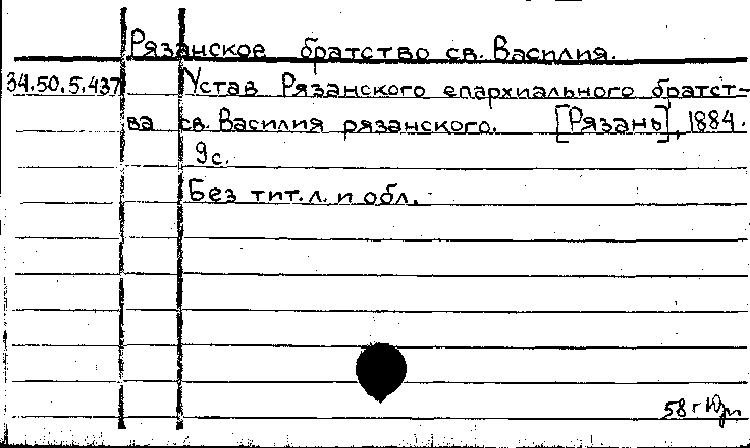 Рязанское братство св. Василия.
34.50.5.437 Устав Рязанского епархиального братст-
ва св. Василия рязанского. [Рязань], 1884.
9с.
Без тит.л. и обл.
58г